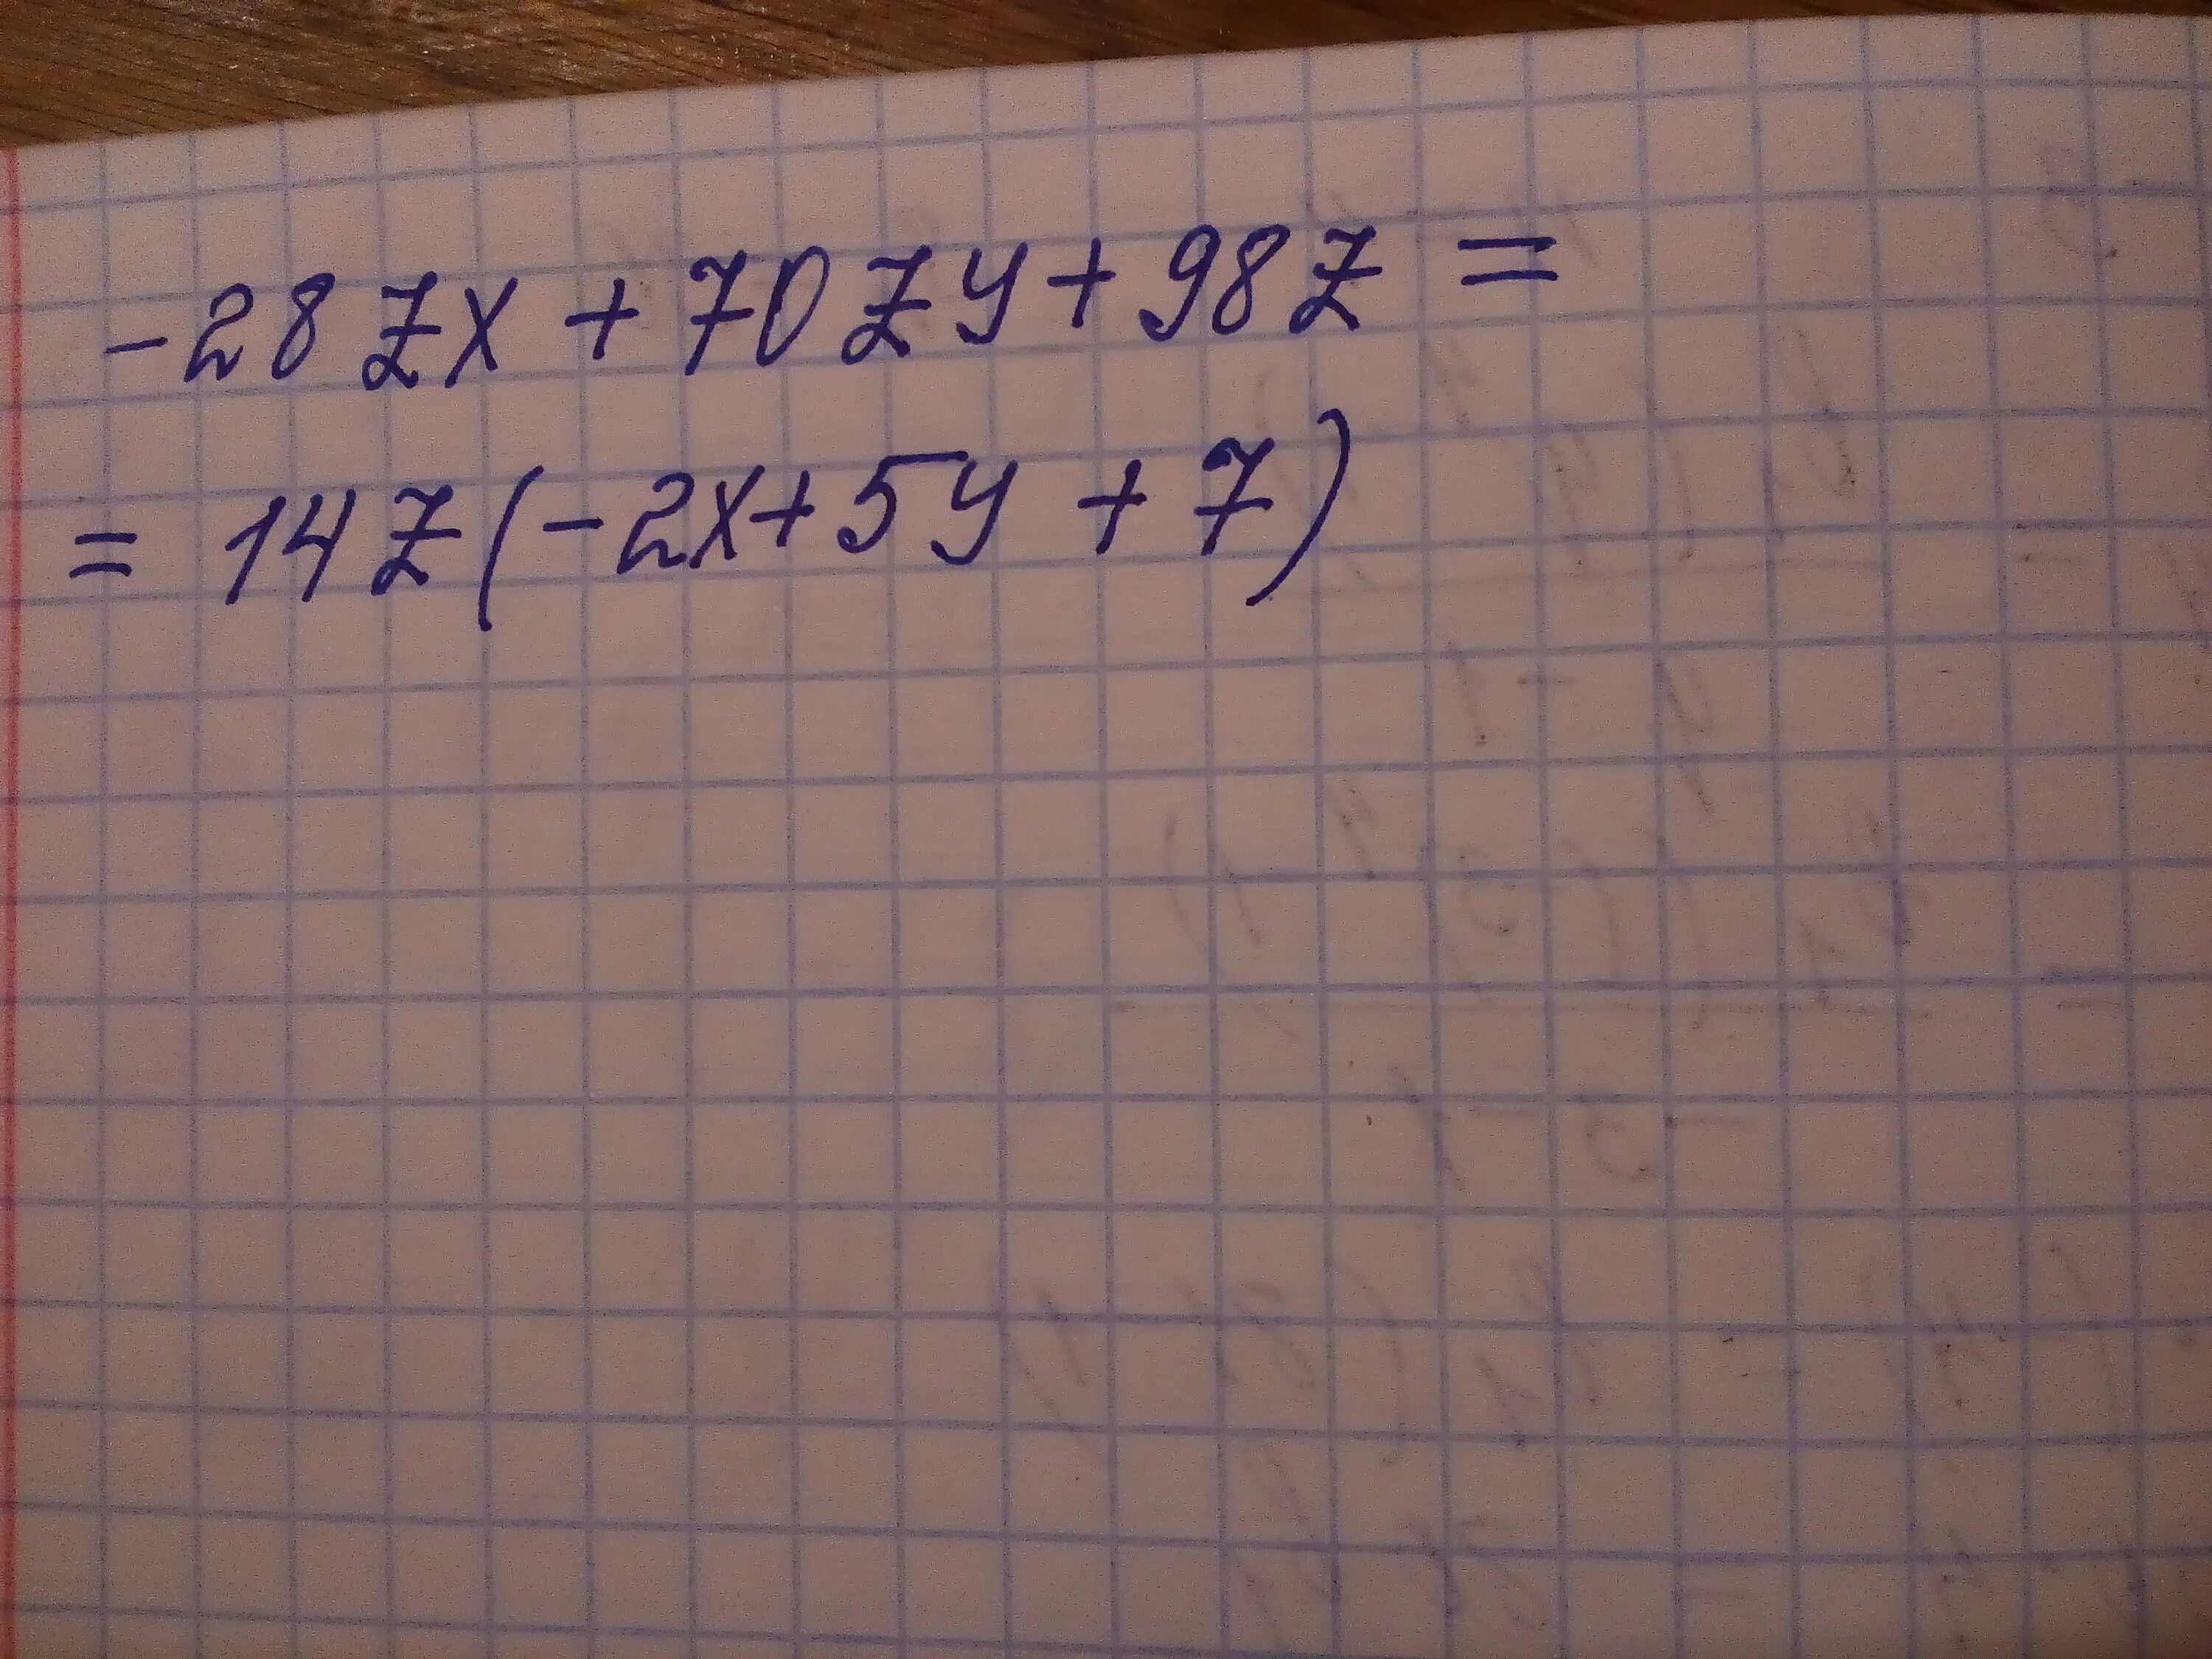 -28zx + 70zy + 98z =
= 14z(-2x + 5y + 7)